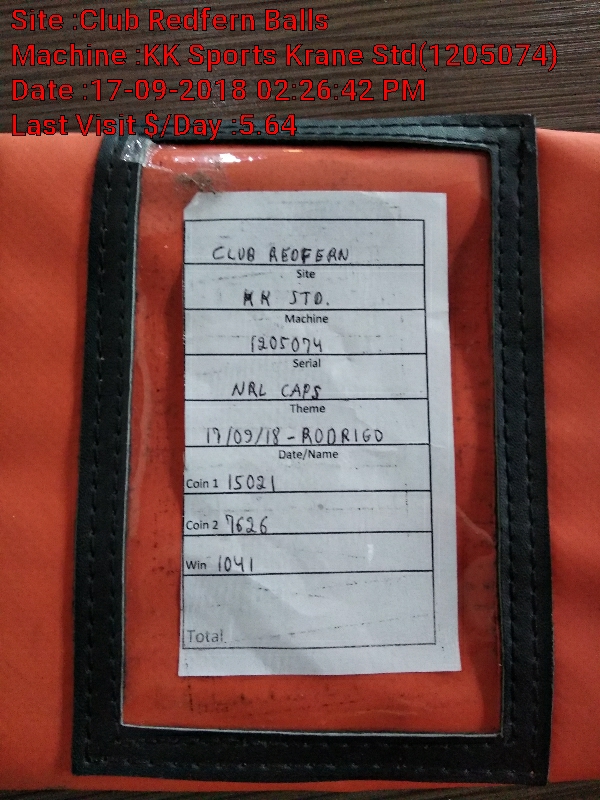 Site :Club Redfern Balls
Machine :KK Sports Krane Std(1205074)
Date :17-09-2018 02:26:42 PM
Last Visit $/Day :5.64
CLUB REDFERN
Site
KK STD.
Machine
1205074
Serial
NRL CAPS
Theme
17/09/18-RODRIGO
Date/Name
Coin 1 15021
Coin 2 7626
Win 1041
Total